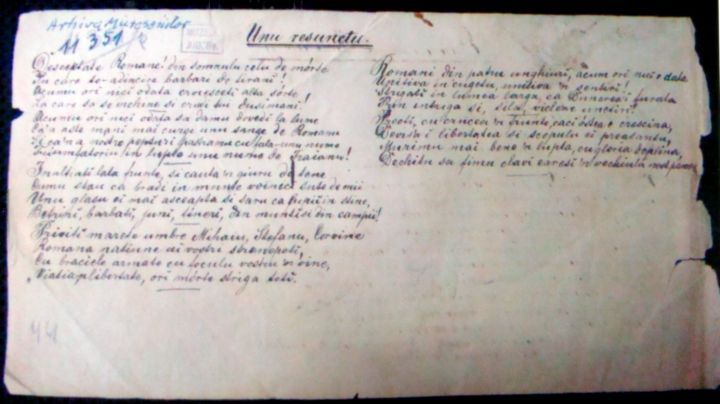 Arhiva Muresenilor
11 351
Unu resunetu.
Desceptate Romane! din somnulu celu de mórte
In care te-adincire barbari de tirani!
Acumu ori nici odata croiesceti alta sórte
La care sa se-nchine si crudi tui dusimani!
Acumu ori nici odata sa damu dovedi la lume
Ca'n aste mani mai curge unu sange de Romanu
Si ca'n a nostre pepturi pastramu cu fala-unu nume
Triumfatoriu in lupte unu nume de Traianu!
Inalta-ti lata frunte, si cauta'n giuru de tene
Cumu stau ca bradi in munte voinici sute de mii
Unu glasu ei mai ascépta si saru ca lupii in stine,
Betrani, barbati, juni, tineri, din munti si din campii!
Priviti marete umbre Mihaiu, Stefanu, Corvine
Romana natiune ai vostri stranepoti,
Cu braciele armate cu foculu vostru'n vine,
"Viatia'n libertate, ori mórte striga toti.
Romani din patru unghiuri, acum ori nici o data
Uniti-va in cugetu, uniti-va'n sentiri!
Strigati in lumea larga, ca Dunarea-i furata
Prin intriga si, silă, viclene uneltiri.
Preoti, cu crucea'n frunte, caci óstea e crestina,
Devisa-i libertatea si scopulu ei preasantu,
Murimu mai bene'n lupta, cu gloria deplina,
Decâtu sa fimu sclavi